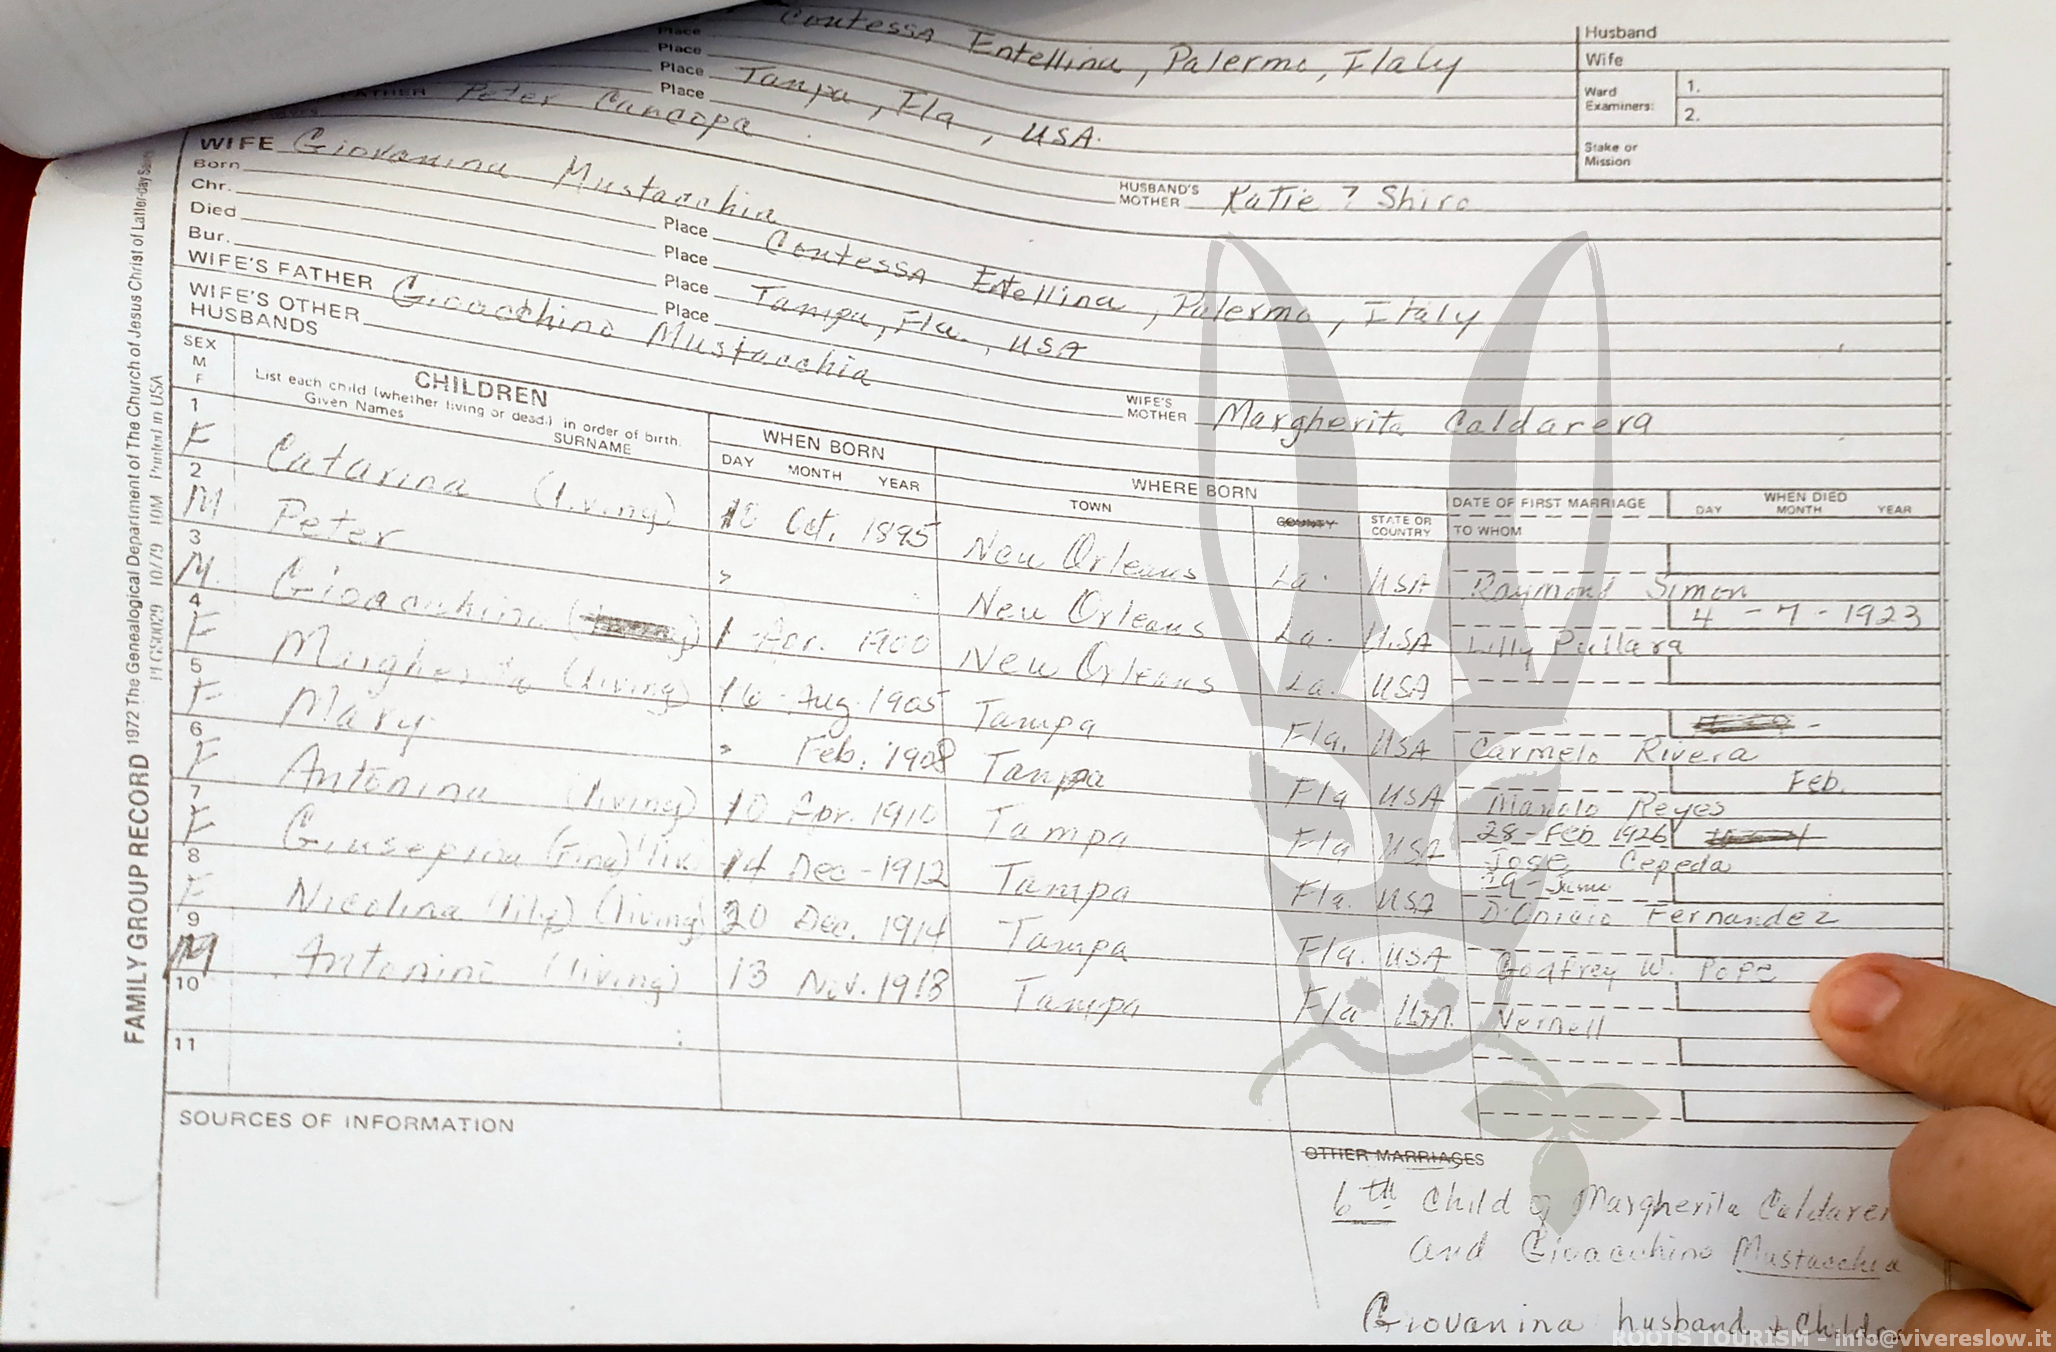 Place Contessa Entellina, Palermo, Italy
Place
Place Tampa, Fla, USA.
Place
Husband
Wife
Ward Examiners: 1.
2.
Stake or Mission
FATHER Peter Cuncopa
HUSBAND'S MOTHER Katie ? Shiro
WIFE Giovanina Mustacchia
Born Place Contessa Entellina, Palermo, Italy
Chr. Place
Died Place Tampa, Fla., USA
Bur. Place
WIFE'S FATHER Gioacchino Mustacchia
WIFE'S MOTHER Margherita Caldarera
WIFE'S OTHER HUSBANDS
SEX M F
CHILDREN
List each child (whether living or dead) in order of birth.
Given Names SURNAME
WHEN BORN
DAY MONTH YEAR
WHERE BORN
TOWN COUNTY STATE OR COUNTRY
DATE OF FIRST MARRIAGE
TO WHOM
WHEN DIED
DAY MONTH YEAR
1 F Catarina (living) 18 Oct. 1895 New Orleans La. USA Raymond Simon
4 - 7 - 1923
2 M Peter ? New Orleans La. USA Lilly Pullara
3 M. Gioacchino 1 Apr. 1900 New Orleans La. USA
4 F Margherita (living) 16 Aug. 1905 Tampa Fla. USA Carmelo Rivera
Feb.
5 F Mary ? Feb. 1908 Tampa Fla USA Manolo Reyes
28 - Feb 1926
6 F Antonina (living) 10 Apr. 1910 Tampa Fla USA Jose Cepeda
19 - June
7 F Giusepina (Fina) 14 Dec - 1912 Tampa Fla. USA Fernandez
8 F Nicolina (lily) (living) 20 Dec. 1914 Tampa Fla. USA Godfrey W. Pope
9 M Antonino (living) 13 Nov. 1918 Tampa Fla USA. Vernell
10
11
SOURCES OF INFORMATION
OTHER MARRIAGES
6th Child of Margherita Caldarer
and Gioacchino Mustacchia
Giovanina husband + Childre
FAMILY GROUP RECORD 1972 The Genealogical Department of The Church of Jesus Christ of Latter-day Saints
PFGS0029 10/79 10M Printed in USA
ROOTS TOURISM - info@vivereslow.it